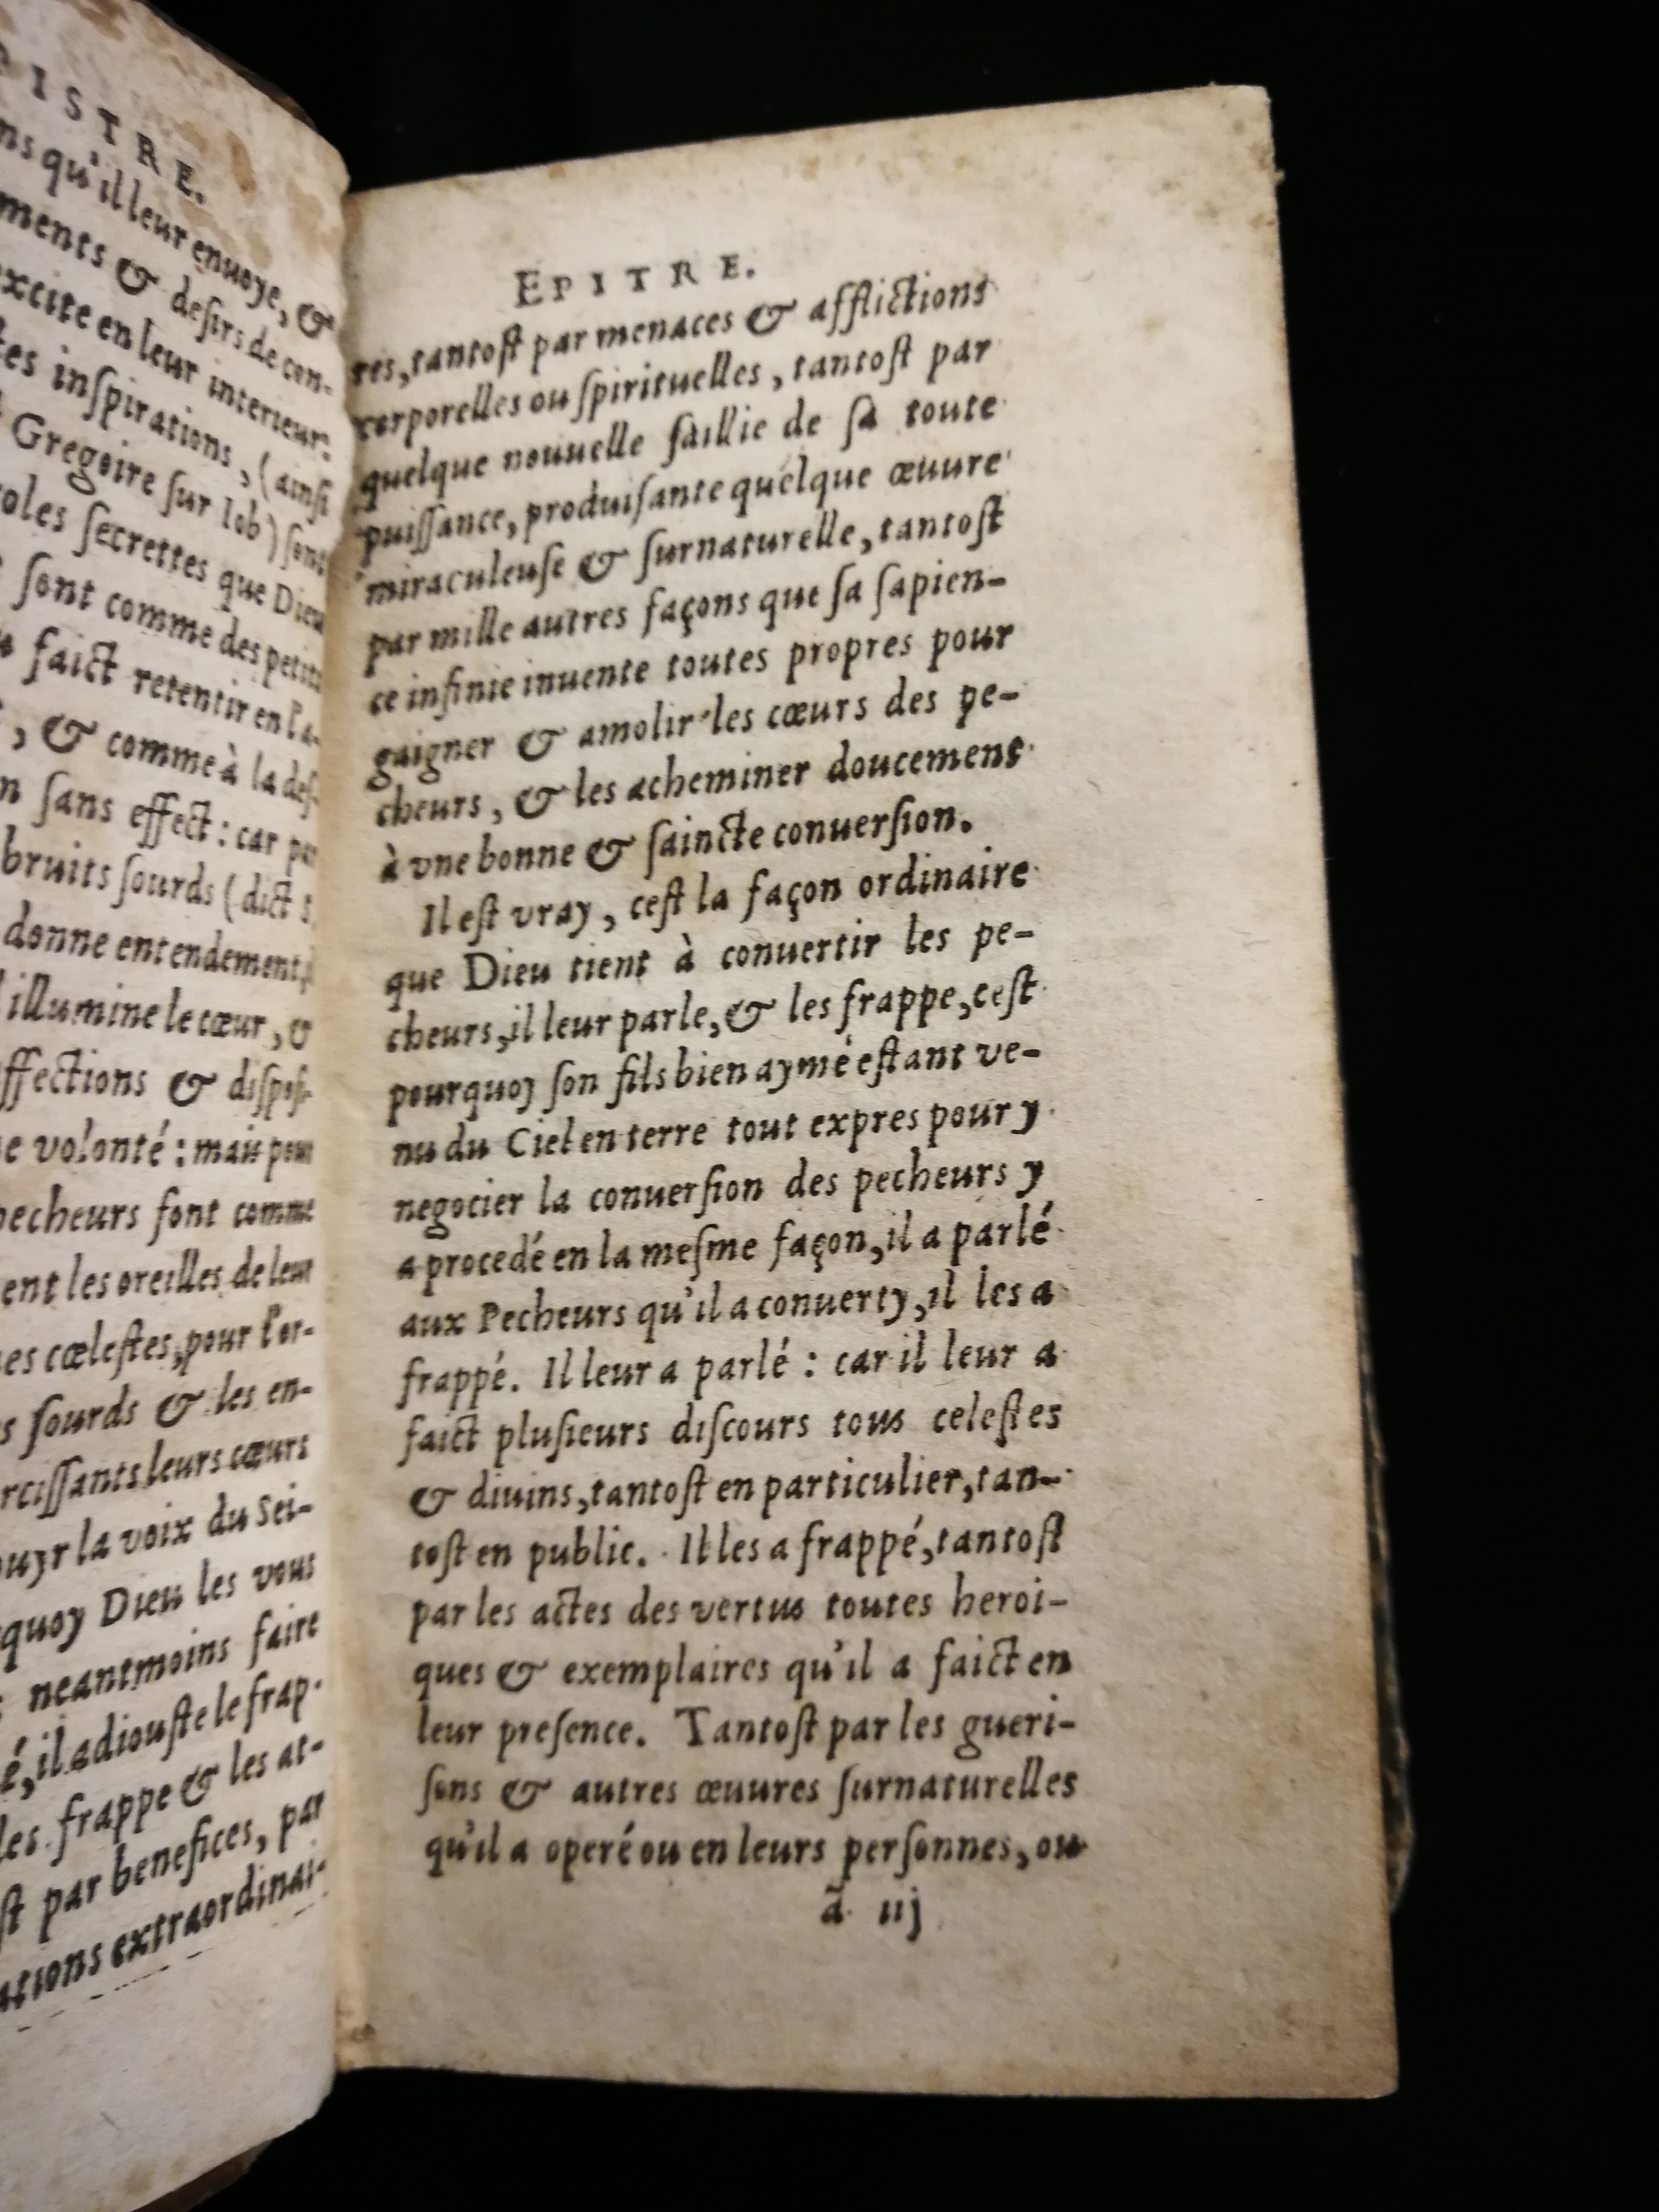 ISTRE.
qu'il leur enuoye, &
ments & deſirs de con-
excite en leur interieur:
inſpirations, (ainſi
Gregoire ſur Iob) ſont
ſecrettes que Dieu
ſont comme des petits
faict retentir en l'a-
, & comme à la deſ-
ſans effect: car par
bruits ſourds (dict S.
donne entendement,
illumine le cœur, &
affections & diſpoſi-
volonté: mais pour
pecheurs font comme
les oreilles de leur
cœleſtes, pour l'or-
ſourds & les en-
leurs cœurs
ouyr la voix du Sei-
quoy Dieu les vous
neantmoins faire
il adiouſte le frap-
les frappe & les at-
par benefices, par
extraordinai-
EPITRE.
res, tantoſt par menaces & afflictions
corporelles ou ſpirituelles, tantoſt par
quelque nouuelle ſaillie de ſa toute
puiſſance, produiſante quelque œuure
miraculeuſe & ſurnaturelle, tantoſt
par mille autres façons que ſa ſapien-
ce infinie inuente toutes propres pour
gaigner & amolir les cœurs des pe-
cheurs, & les acheminer doucement
à vne bonne & ſaincte conuerſion.
Il eſt vray, ceſt la façon ordinaire
que Dieu tient à conuertir les pe-
cheurs, il leur parle, & les frappe, ceſt
pourquoy ſon fils bien aymé eſtant ve-
nu du Ciel en terre tout expres pour y
negocier la conuerſion des pecheurs y
a procedé en la meſme façon, il a parlé
aux Pecheurs qu'il a conuerty, il les a
frappé. Il leur a parlé : car il leur a
faict pluſieurs diſcours tous celeſtes
& diuins, tantoſt en particulier, tan-
toſt en public. Il les a frappé, tantoſt
par les actes des vertus toutes heroi-
ques & exemplaires qu'il a faict en
leur preſence. Tantoſt par les gueri-
ſons & autres œuures ſurnaturelles
qu'il a operé ou en leurs perſonnes, ou
ã iij